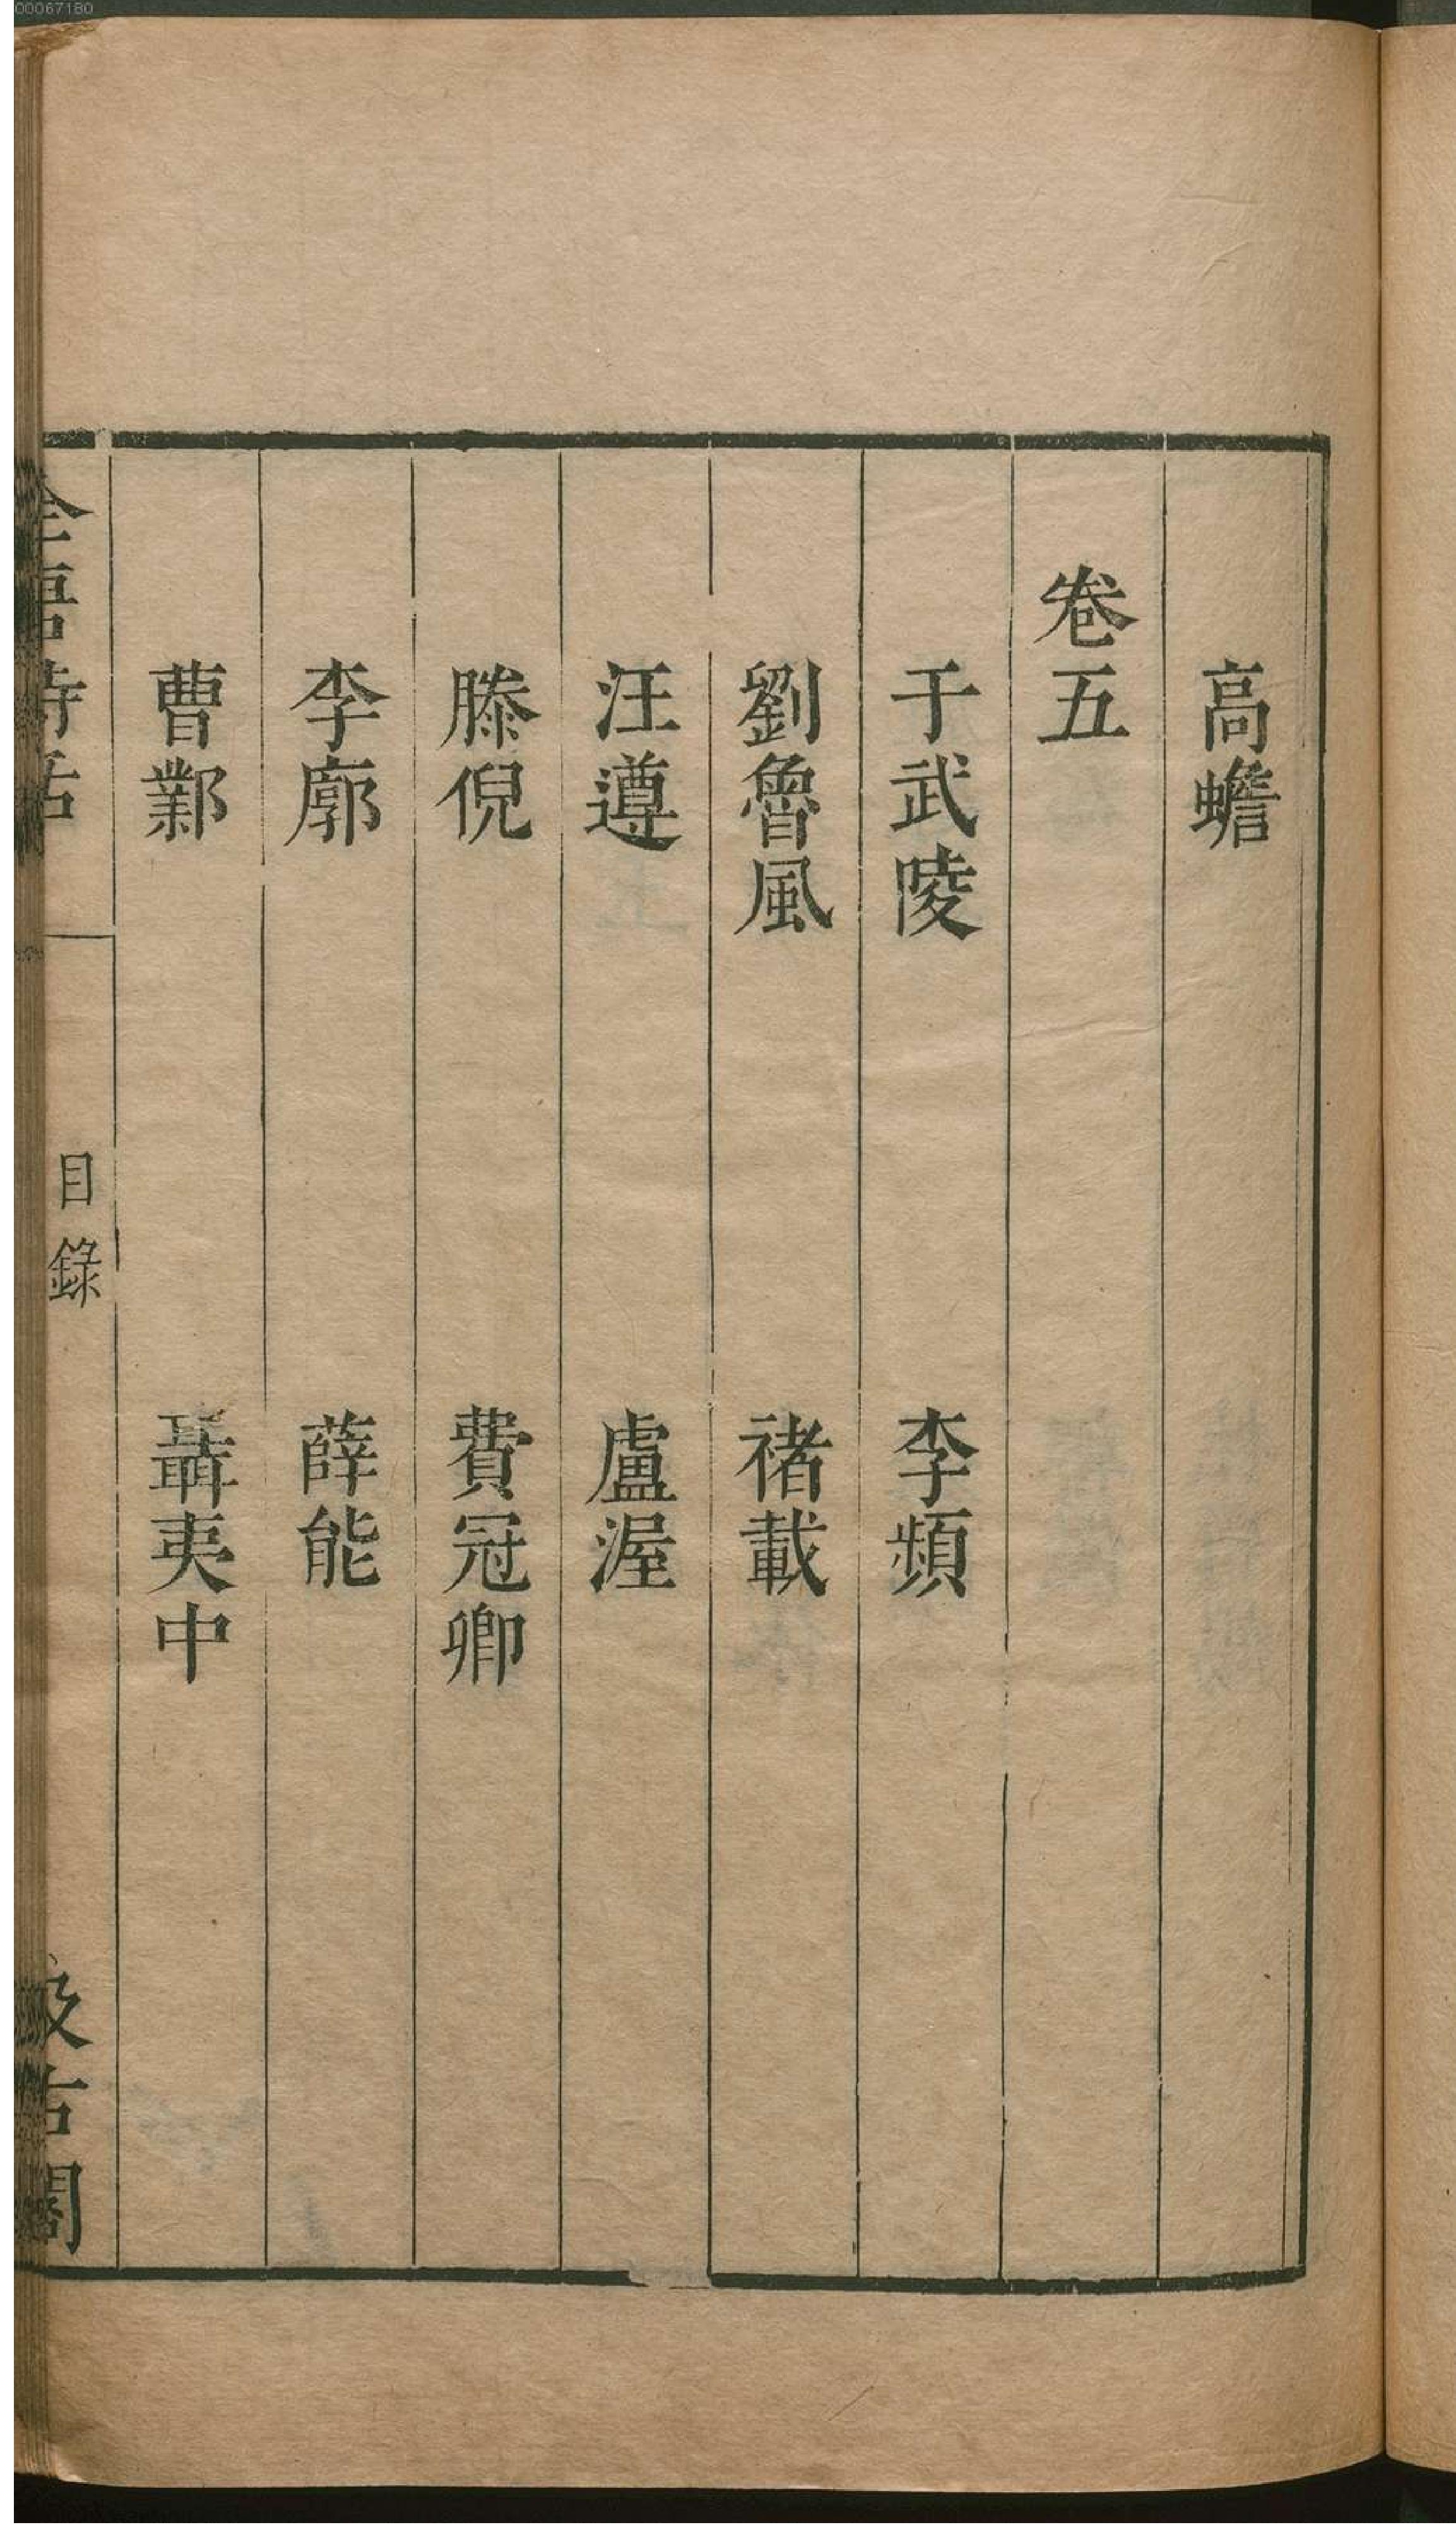 00067180
高蟾
卷五
于武陵　李頻
劉魯風　褚載
汪遵　盧渥
滕倪　費冠卿
李廓　薛能
曹鄴　聶夷中
全唐詩話　目錄　汲古閣